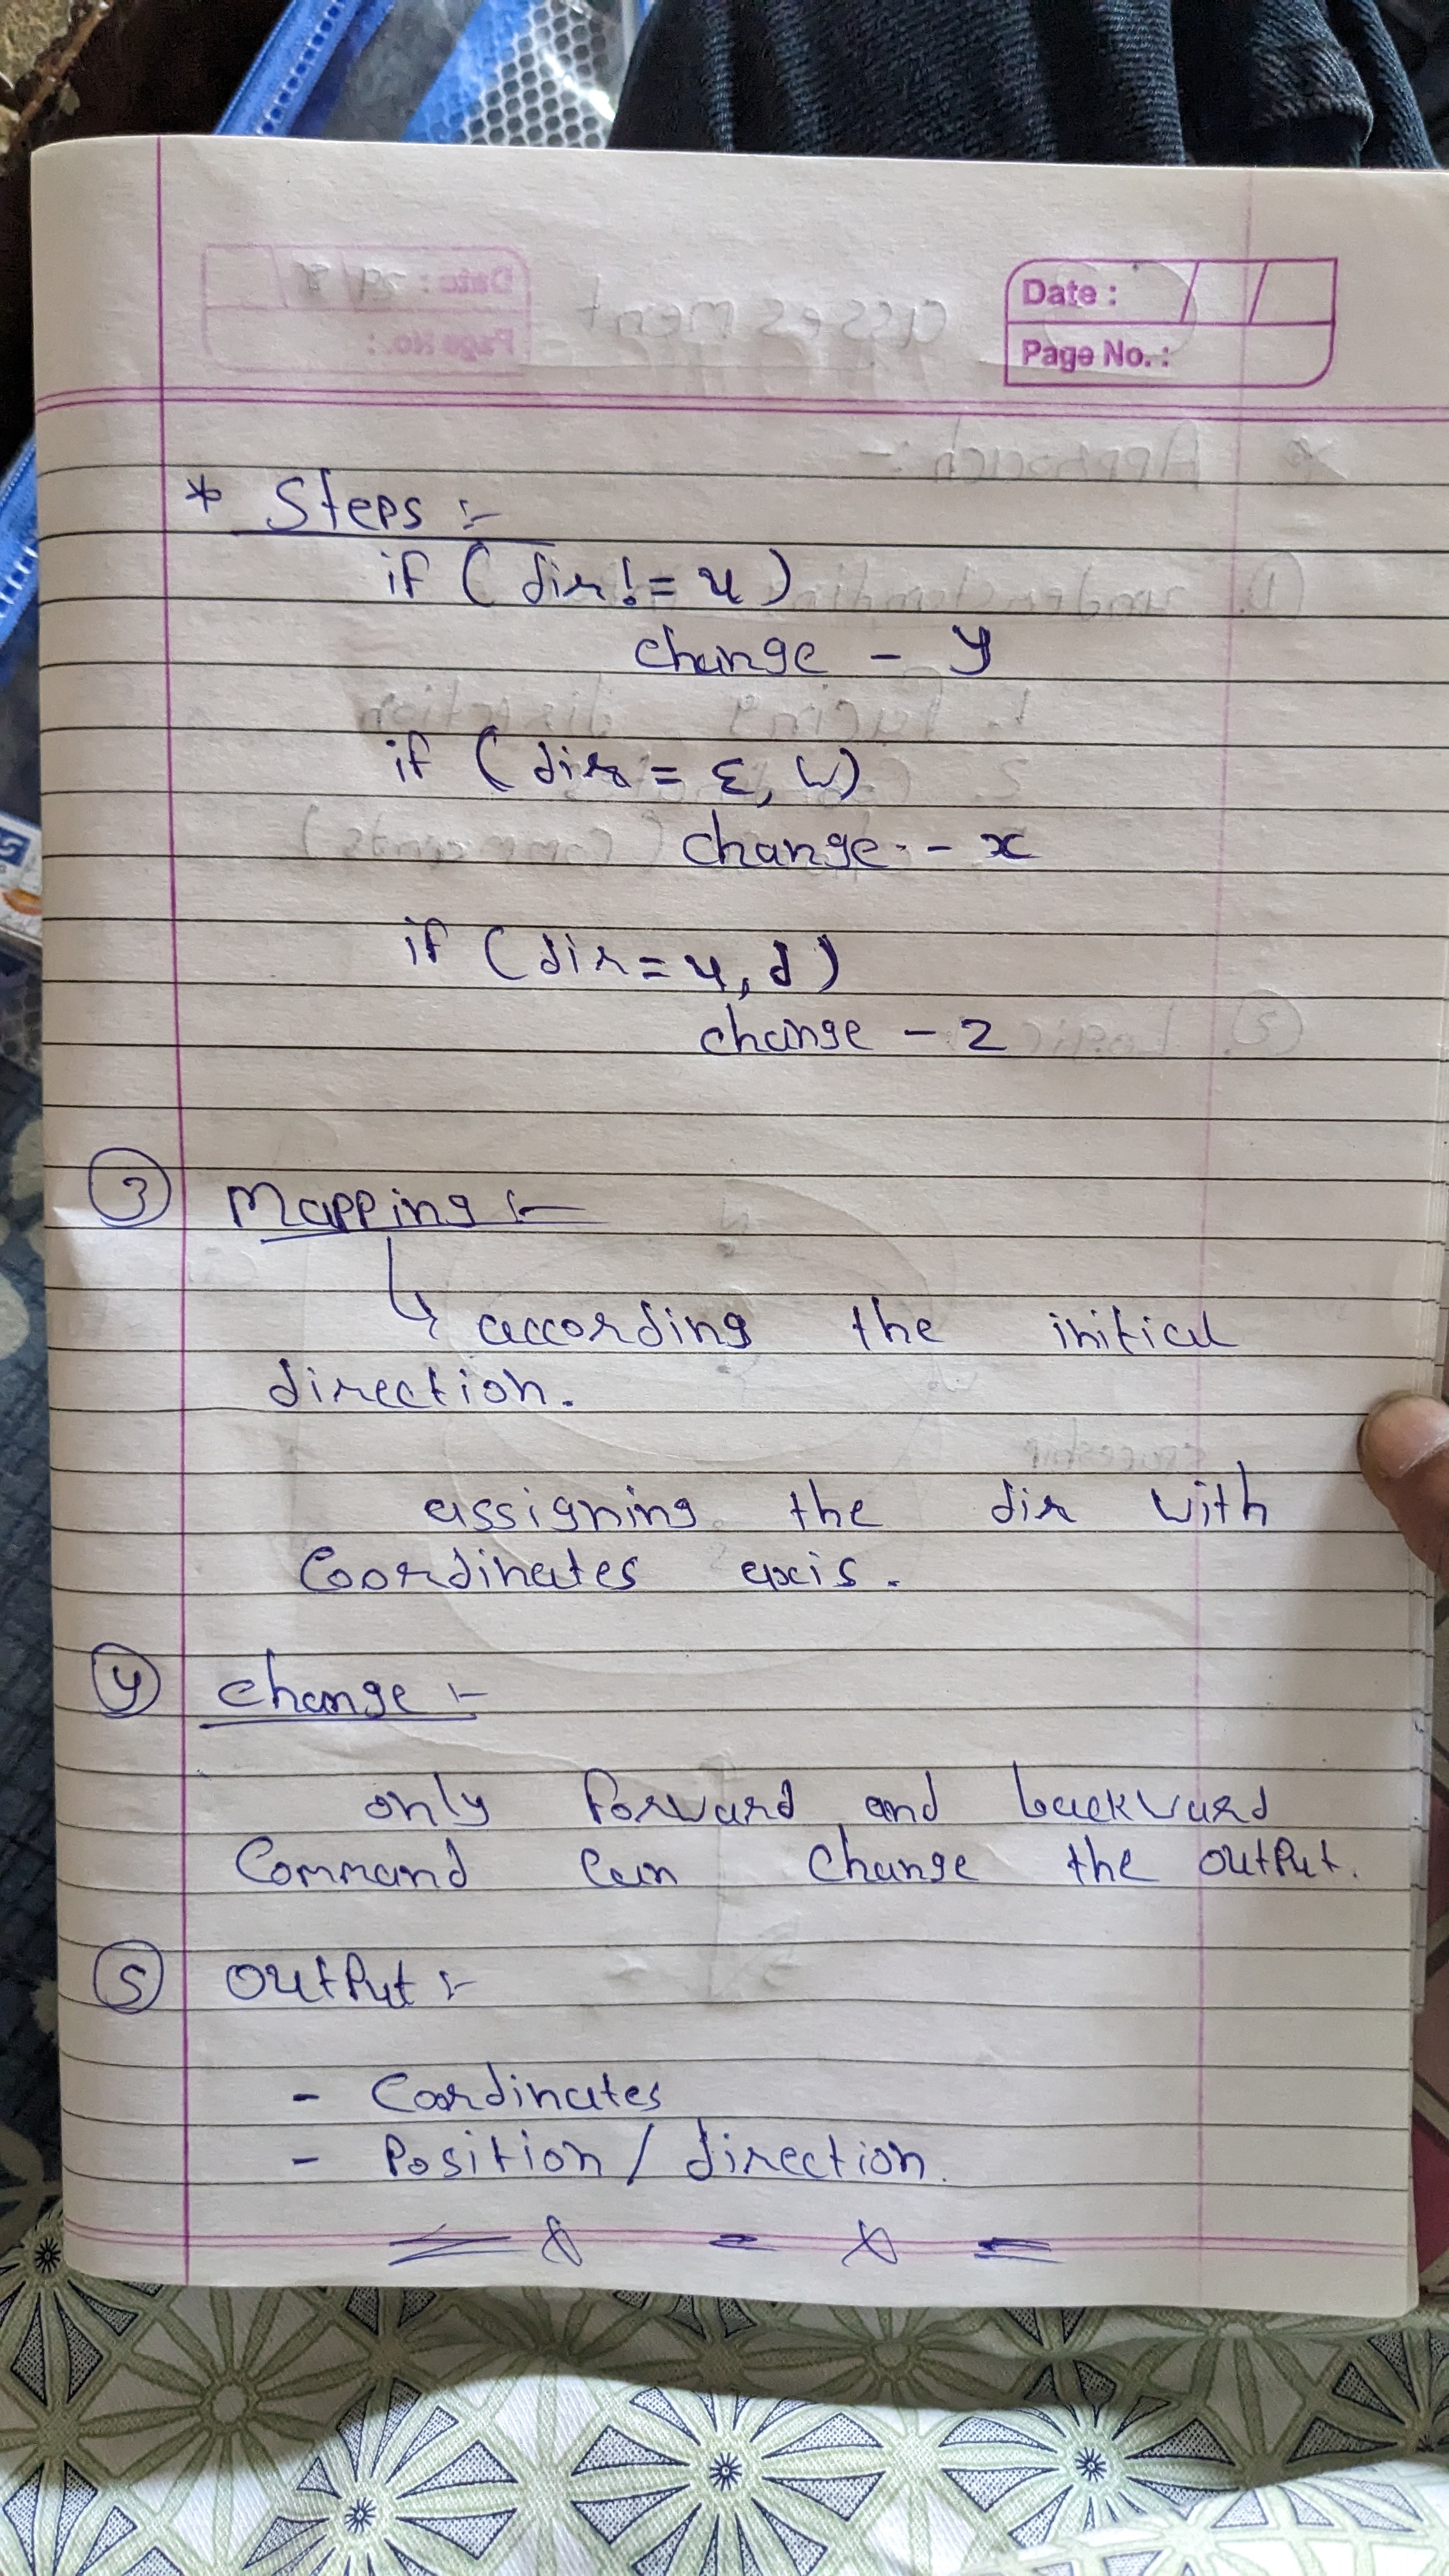 Date :
Page No. :
* Steps :-
if ( dir != u )
change - y
if ( dir = E, W)
change - x
if ( dir = u, d )
change - z
3 Mapping :-
↳ according the initial
direction.
assigning the dir with
Coordinates axis.
4 change :-
only forward and backward
Command can change the output.
5 output :-
- Coordinates
- Position / direction.